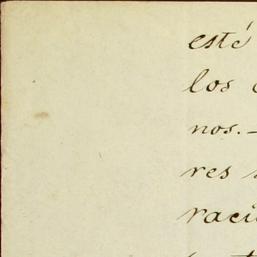 esté
los
nos.—
res
raci